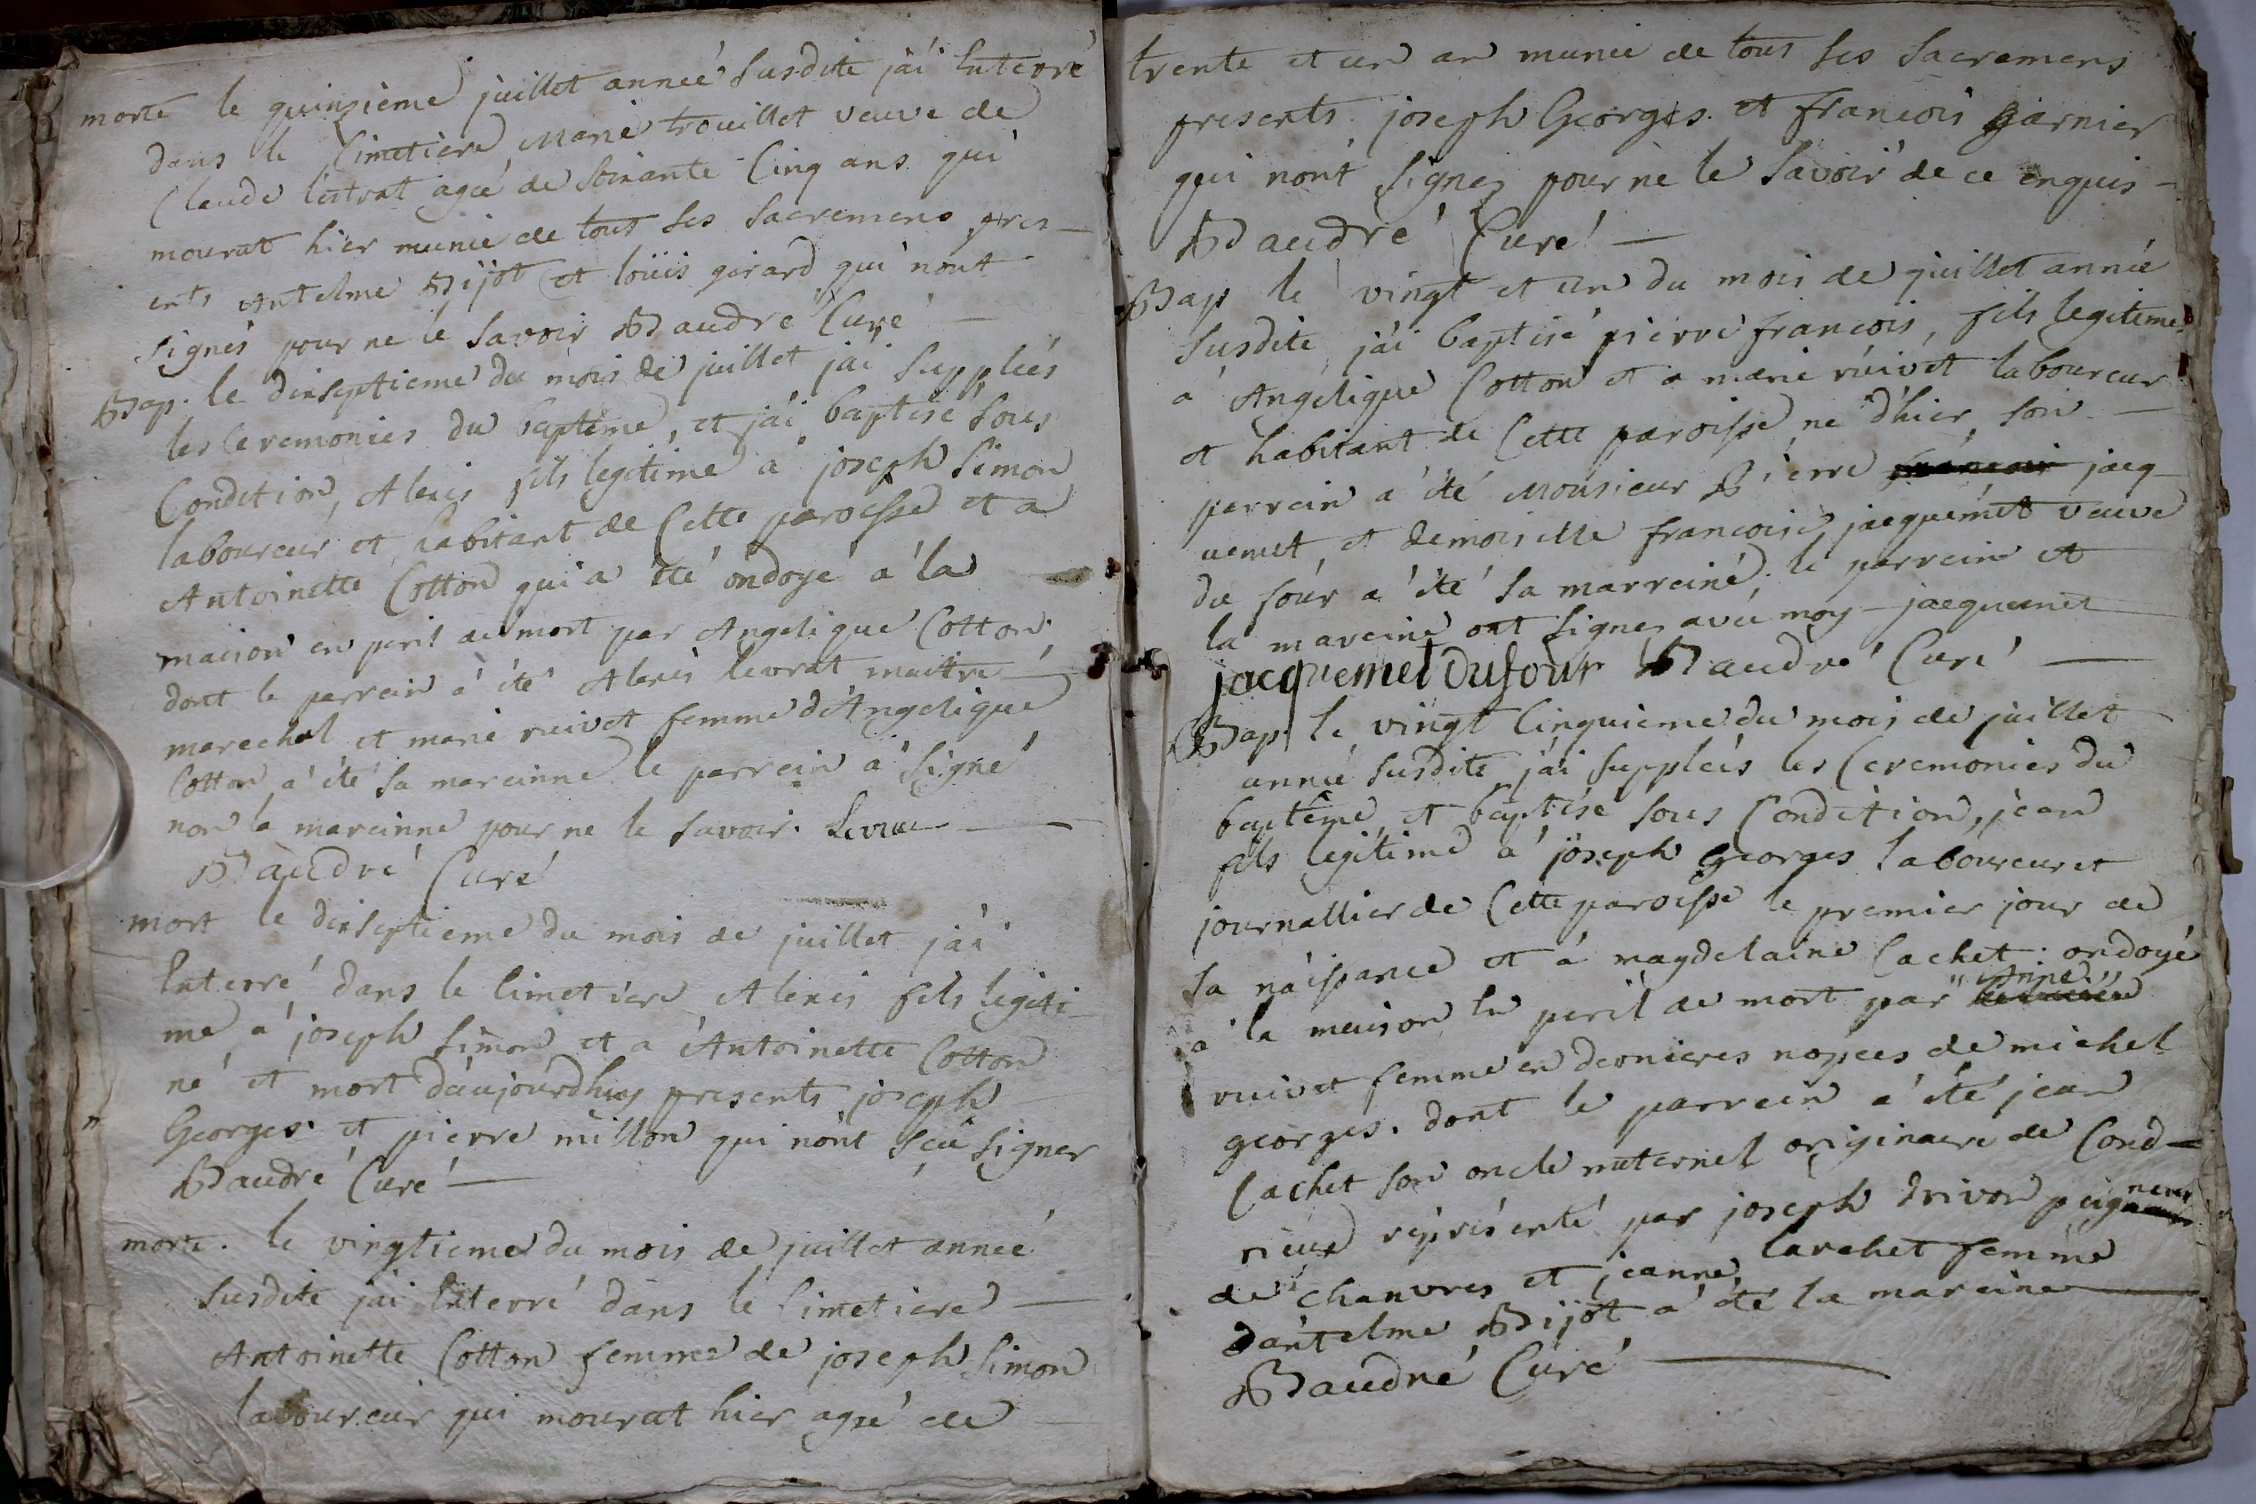 morte le quinsieme juillet anneé susdite j'ai Enterré
dans le Cimetiere Marie trouillet veuve de
Claude lestrat ageé de Soixante Cinq ans qui
mourut hier munie de tous ses sacremens pres-
ents Antelme Bijot et loüis girard qui nont
signés pour ne le savoir Baudré Curé
Bap. le dixseptieme du mois de juillet jai suppleés
les Ceremonies du baptême, et jai baptisé sous
Condition, Alexis fils legitime à joseph Simon
laboureur et habitant de Cette paroisse et a
Antoinette Cotton qui a été ondoyé à la
maison en peril de mort par Angelique Cotton
dont le parrein à été Alexis levrat maitre
marechal et marie ruivet femme d'Angelique
Cotton a été sa mareinne le parrein à signé
non la mareinne pour ne le savoir.
Baudré Curé
mort le dixseptieme du mois de juillet j'ai
Enterré dans le Cimetiere Alexis fils legiti-
me a joseph Simon et a Antoinette Cotton
né et mort d'aujourdhuy presents joseph
Georges et pierre millon qui nont sçû signer
Baudré Curé
morte. le vingtieme du mois de juillet anneé
susdite j'ai Enterré dans le Cimetiere
Antoinette Cotton femme de joseph Simon
laboureur qui mourut hier ageé de
trente et un an munie de tous ses sacremens
presents joseph Georges et francois garnier
qui nont signes pour ne le savoir de ce enquis-
Baudré Curé
Bap le vingt et un du mois de juillet anneé
susdite j'ai baptisé pierre francois, fils legitime
a Angelique Cotton et a marie ruivet laboureur
et habitant de Cette paroisse né d'hier son
parrein a été Monsieur Pierre francois jacq
uemet et demoiselle francoise jacquemet veuve
du four a été sa marreine le parrein et
la mareine ont signes avec moy jacquemet
jacquemet Dufour Baudré Curé
Bap. le vingt Cinquieme du mois de juillet
anneé susdite j'ai suppleés les Ceremonies du
baptême et baptisé sous Condition, jean
fils legitime a joseph georges laboureur et
journallier de Cette paroisse le premier jour de
sa naissance et à magdelaine Cachet ondoyé
à la maison En peril de mort par "Anne"
ruivet femme en dernieres nopces de michel
georges. dont le parrein a été jean
Cachet son oncle maternel originaire de Cond-
rieux représenté par joseph drivon peigneur
de chanvres et jeanne larchet femme
d'antelme Bijot a été la mareine
Baudré Curé